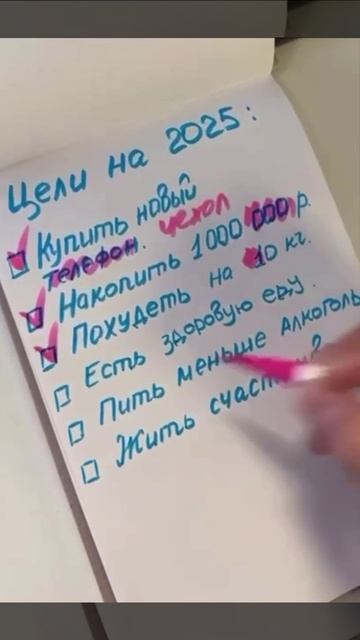 Цели на 2025:
Купить новый
телефон. чехол
Накопить 1000 000 р.
Похудеть на 10 кг.
Есть здоровую еду.
Пить меньше алкоголь
Жить